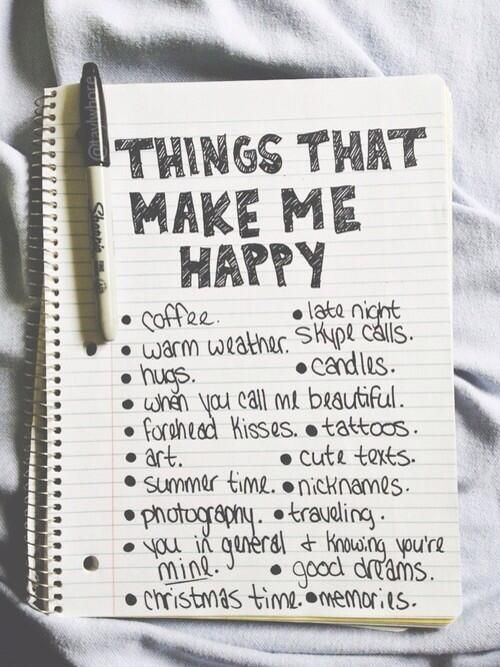 @taylwhore
Sharpie
THINGS THAT
MAKE ME
HAPPY
• coffee.
• late night
skype calls.
• warm weather.
• hugs.
• candles.
• when you call me beautiful.
• forehead kisses. • tattoos.
• art.
• cute texts.
• summer time. • nicknames.
• photography. • traveling.
• you in general + knowing you're
mine.
• good dreams.
• christmas time. • memories.